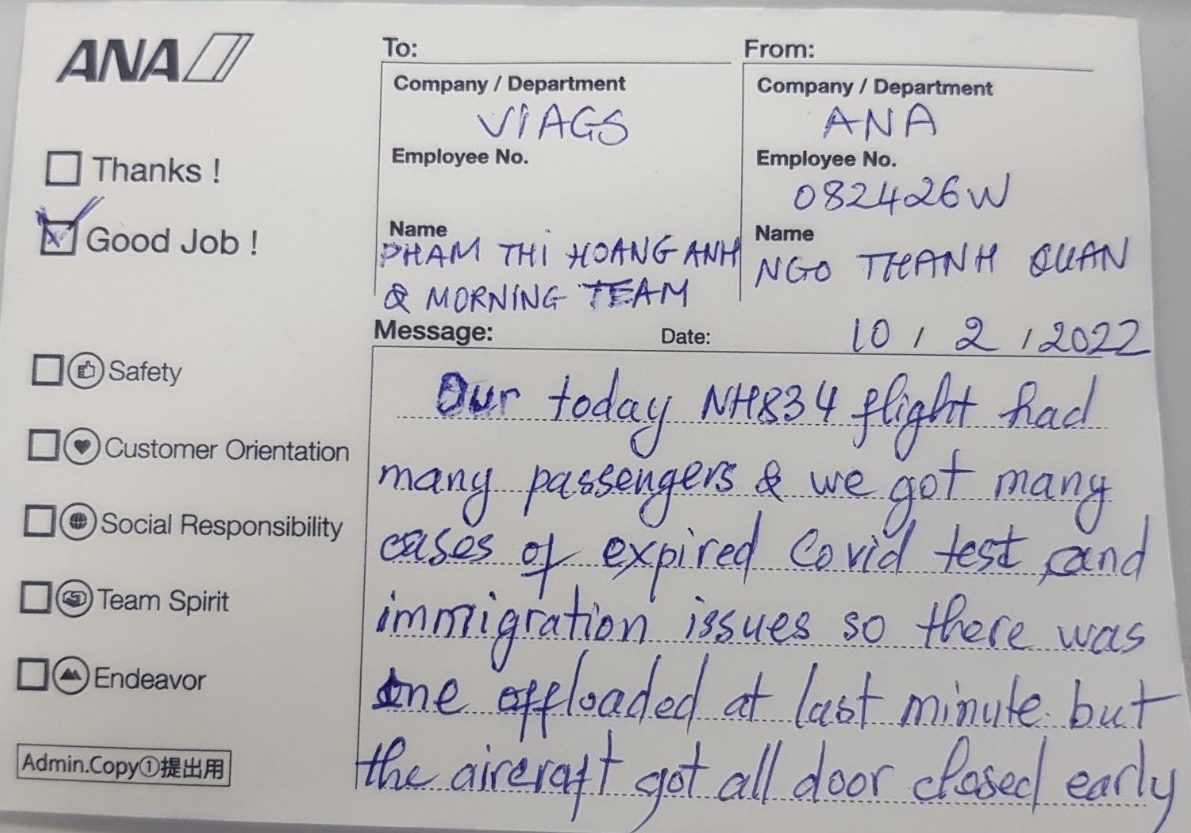 ANA
Thanks !
Good Job !
Safety
Customer Orientation
Social Responsibility
Team Spirit
Endeavor
Admin.Copy①提出用
To:
Company / Department
VIAGS
Employee No.
Name
PHAM THI HOANG ANH
& MORNING TEAM
From:
Company / Department
ANA
Employee No.
082426W
Name
NGO THANH QUAN
Message:
Date: 10 / 2 / 2022
Our today NH834 flight had
many passengers & we got many
cases of expired Covid test and
immigration issues so there was
one offloaded at last minute but
the aircraft got all door closed early